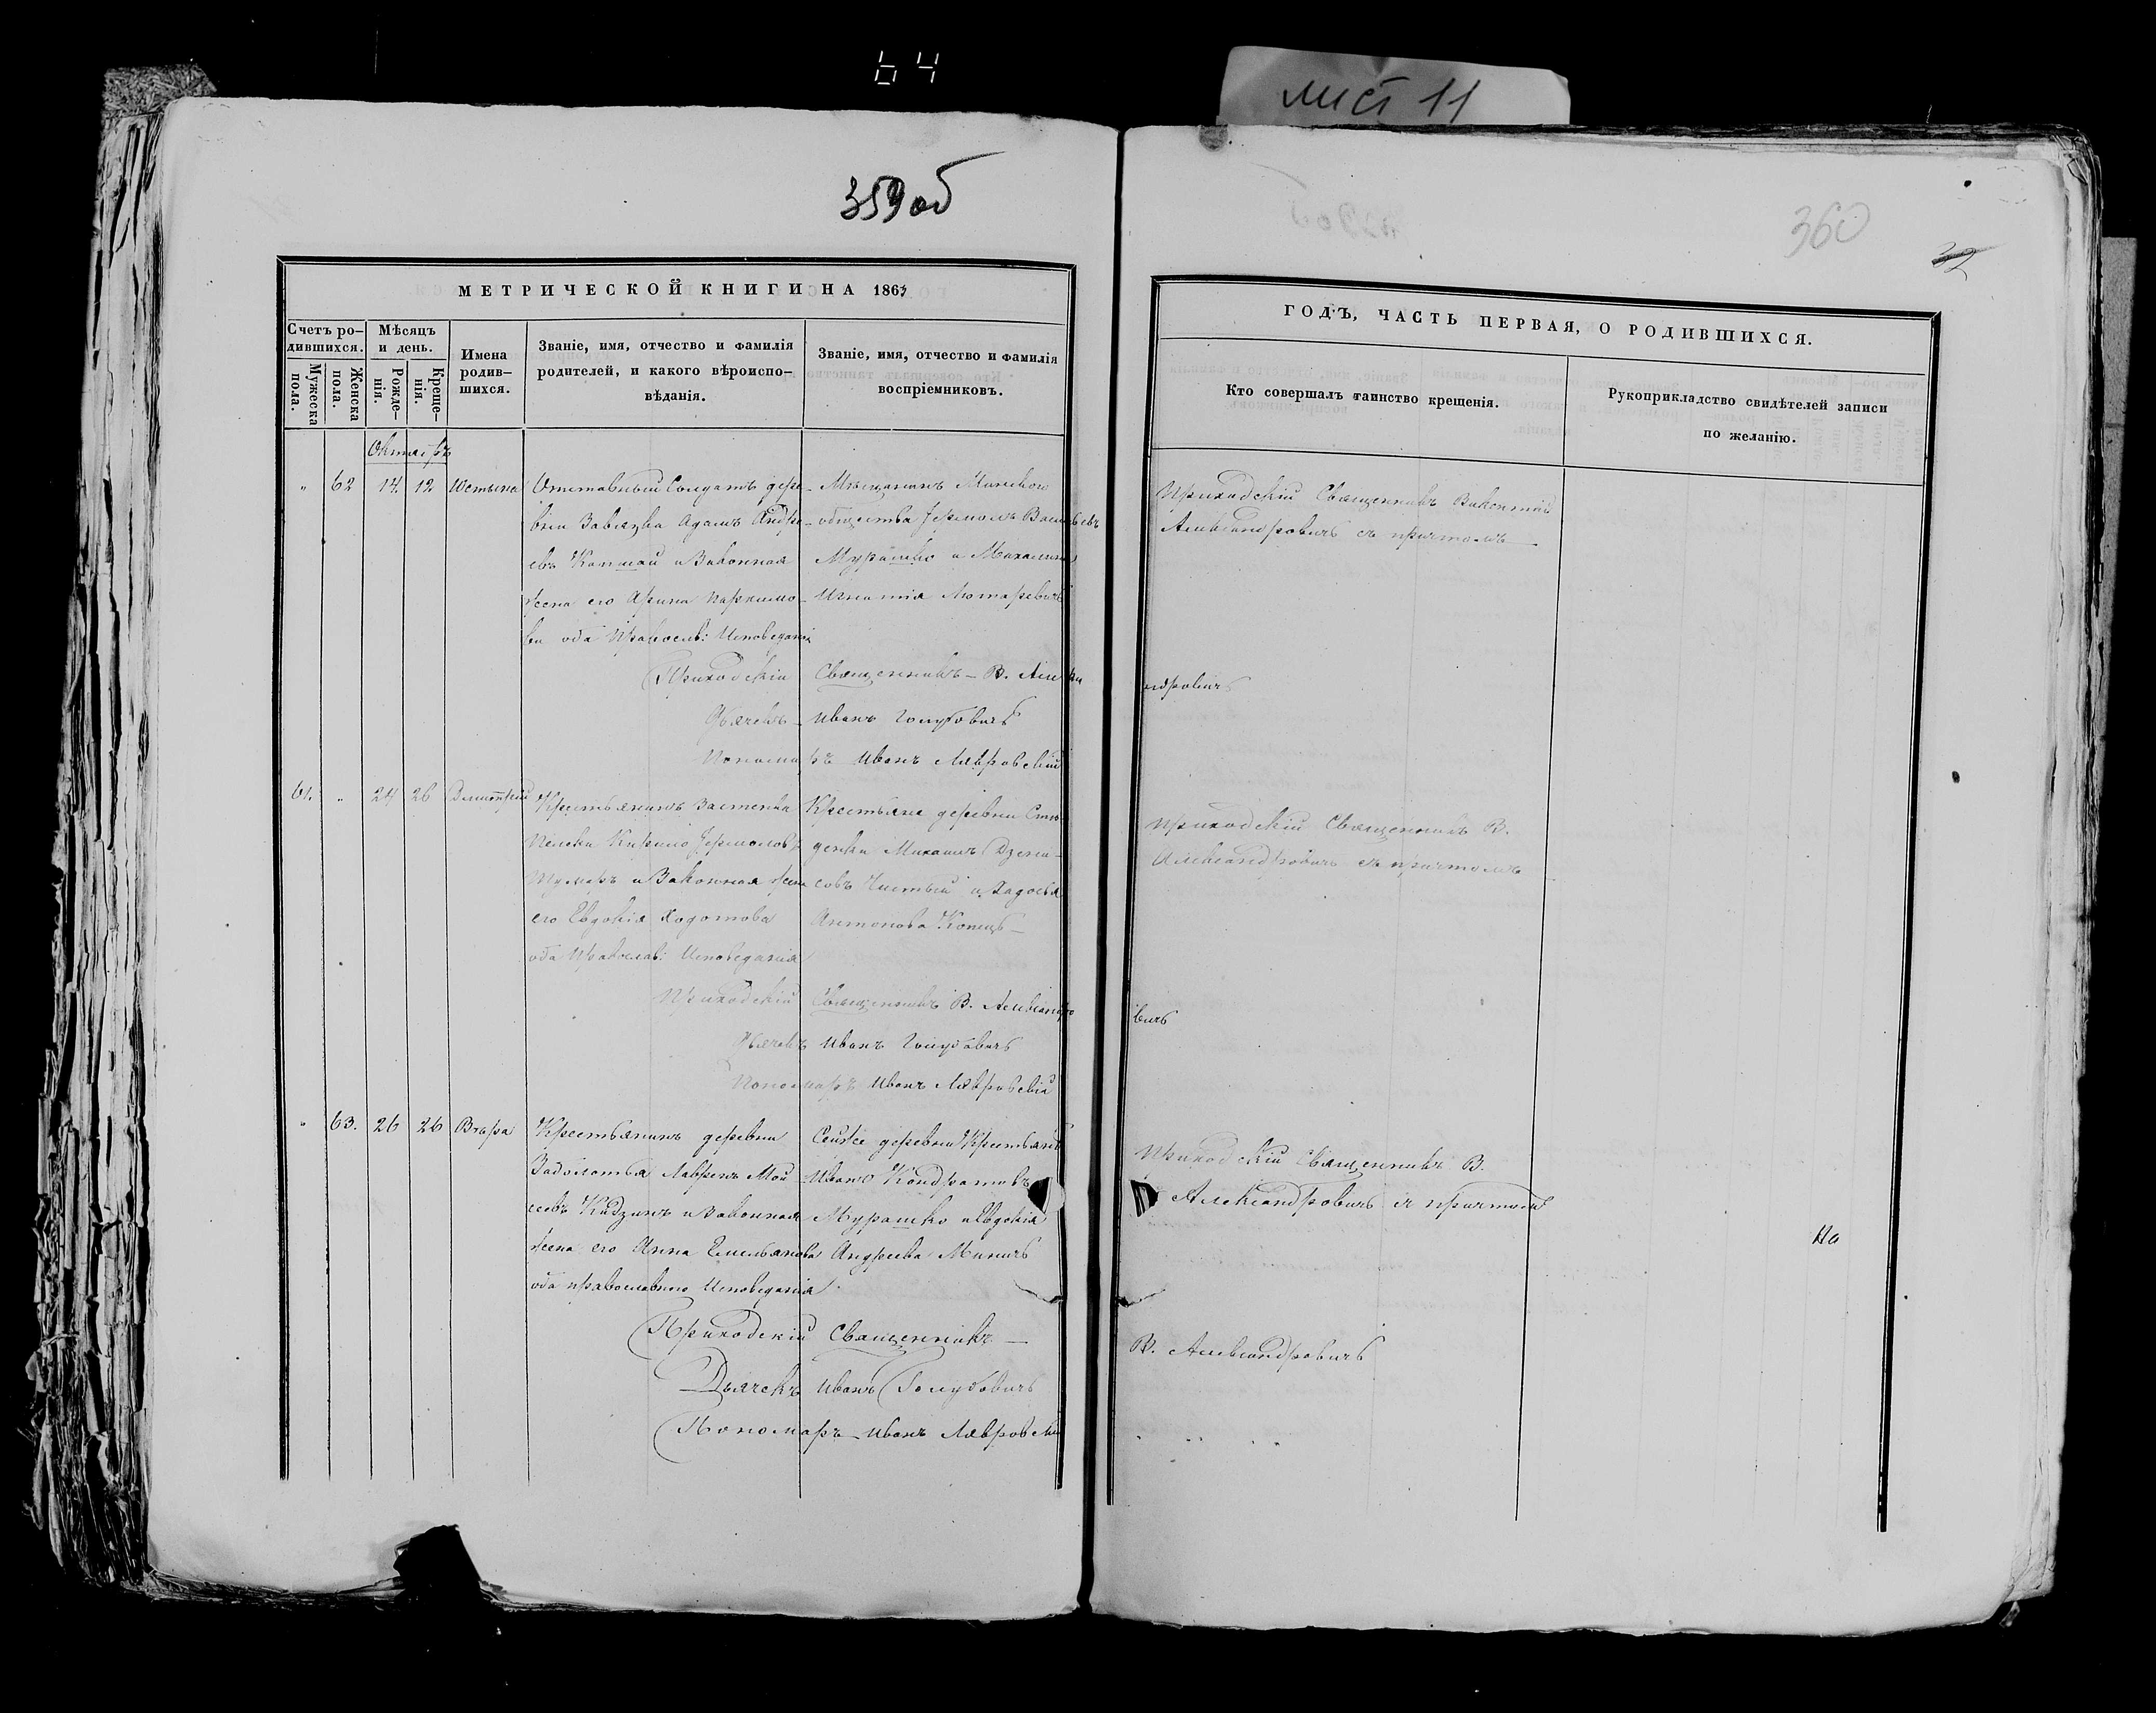 64
лист 11
359 об
360
32
МЕТРИЧЕСКОЙ КНИГИ НА 1863
ГОДЪ, ЧАСТЬ ПЕРВАЯ, О РОДИВШИХСЯ.
Счетъ ро-
дившихся.
Мужеска
пола.
Женска
пола.
Мѣсяцъ
и день.
Рожде-
нія.
Креще-
нія.
Имена
родив-
шихся.
Званіе, имя, отчество и фамилія
родителей, и какого вѣроиспо-
вѣданія.
Званіе, имя, отчество и фамилія
воспріемниковъ.
Кто совершалъ таинство крещенія.
Рукоприкладство свидѣтелей записи
по желанію.
Октябрь
" 62 14 12 Юстына
Отставный Солдатъ дере-
вни Адамъ Андре-
евъ и Законная
жена его Арина
ва оба Правосл: Исповеданія
Мѣщанинъ Минского
общества Васильевъ
Мурашко и
Игнатія
Приходскій Священникъ Викентій
Александровичъ съ причтомъ
Приходскій Священникъ - В. Алекса
ндровичъ
Дьячекъ - Иванъ Голубовичъ
Пономарь Иванъ Лавровскій
61. " 24 26 Дмитрій
Крестьянинъ застенка
Пелеки Кирило
и Законная жена
его Евдокія Ходотова
оба Православ: Исповеданія
Крестьяне деревни
денки Михаилъ
совъ Чистый и
Антонова Конецъ
Приходскій Священникъ В.
Александровичъ съ причтомъ
Приходскій Священникъ В. Александро
вичъ
Дьячекъ Иванъ Голубовичъ
Пономарь Иванъ Лавровскій
" 63. 26 26 Втера
Крестьянинъ деревни
Заболотья Лавренъ Мои
сеевъ и Законная
жена его Анна Емельянова
оба православного Исповеданія
деревни Крестьянъ
Иванъ Кондратовъ
Мурашко и Евдокія
Андреева Миничъ
Приходскій Священникъ В.
Александровичъ съ причтомъ
На
Приходскій Священникъ -
В. Александровичъ
Дьячекъ Иванъ Голубовичъ
Пономарь Иванъ Лавровскій